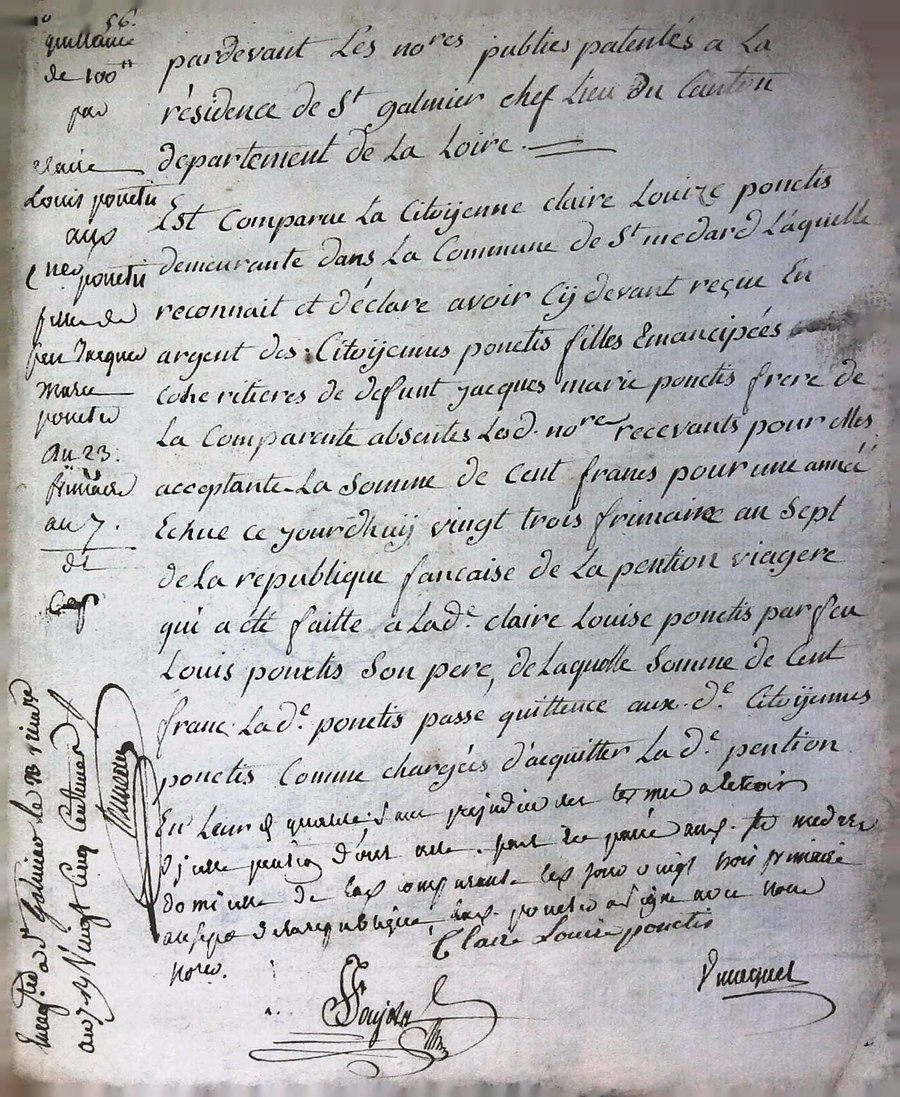 56.
quittance
de 100tt
par
claire
Louis ponctis
aux
ponctis
fille de
feu Jacques
Marie
ponctis
du 23.
frimaire
an 7.
pardevant Les nores publics patentés a La
résidence de St galmier chef Lieu du Canton
departement de La Loire.
Est Comparue La Citoÿenne claire Louize ponctis
demeurante dans La Commune de St medard Laquelle
reconnait et déclare avoir Cÿ devant reçue En
argent des Citoÿennes ponctis filles Emancipées
cohéritieres de defunt jacques marie ponctis frere de
La Comparente absentes Lesd. nores recevants pour elles
acceptante La Somme de Cent francs pour une année
Echue ce jourdhuÿ vingt trois frimaire an Sept
de La republique fancaise de La pention viagere
qui a été faitte a Lade. claire Louise ponctis par feu
Louis ponctis Son pere, de Laquelle Somme de Cent
franc. La de. ponctis passe quittence aux. de. Citoÿennes
ponctis Comme chargées d'acquitter La de. pention
En Leur qualité Sans prejudice des termes a
pention fait et passé aud. St medard
domicille de lad comparante led jour vingt trois frimaire
an sept de la republique, lad. ponctis a signé avec nous
nores.
Claire Louise ponctis
Enregistré a St Galmier le
an 7. R/ Vingt Cinq Centimes